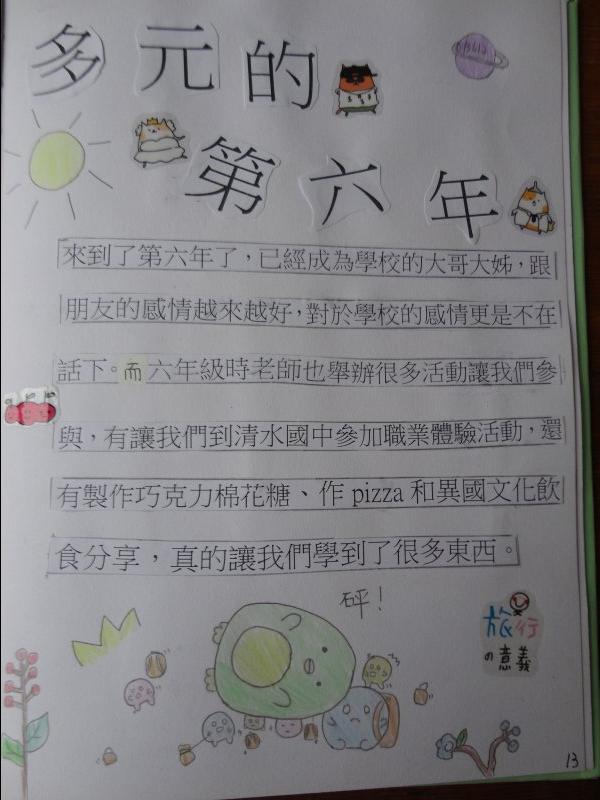 多元的
第六年
來到了第六年了，已經成為學校的大哥大姊，跟
朋友的感情越來越好，對於學校的感情更是不在
話下。而六年級時老師也舉辦很多活動讓我們參
與，有讓我們到清水國中參加職業體驗活動，還
有製作巧克力棉花糖、作 pizza 和異國文化飲
食分享，真的讓我們學到了很多東西。
砰！
旅行
の意義
13